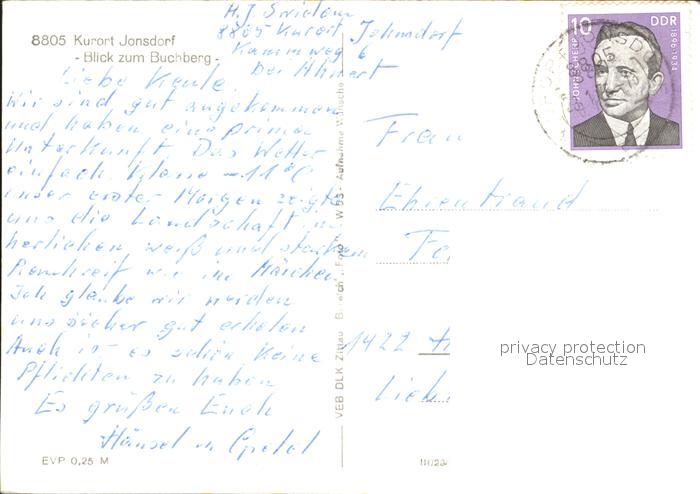 H. J. Swidom
8805 Kurort Johnsdorf
Kammweg 6
bei Ahnert
8805 Kurort Jonsdorf
- Blick zum Buchberg -
Liebe Keule,
Wir sind gut angekommen
und haben eine prima
Unterkunft Das Wetter
einfach klasse -11°C
unser erster Morgen zeigte
uns die Landschaft in
herlichen weiß und starkem
Rauhreif wie im Märchen
Ich glaube wir werden
uns sicher gut erholen
Auch ist es schön keine
Pflichten zu haben
Es grüßen Euch
Hänsel u Gretel
EVP 0,25 M
VEB DLK Zittau
10 DDR
JOHN SCHEHR
1896-1934
Frau
Ehrentraud
1422
Lieb
III/28/
privacy protection
Datenschutz